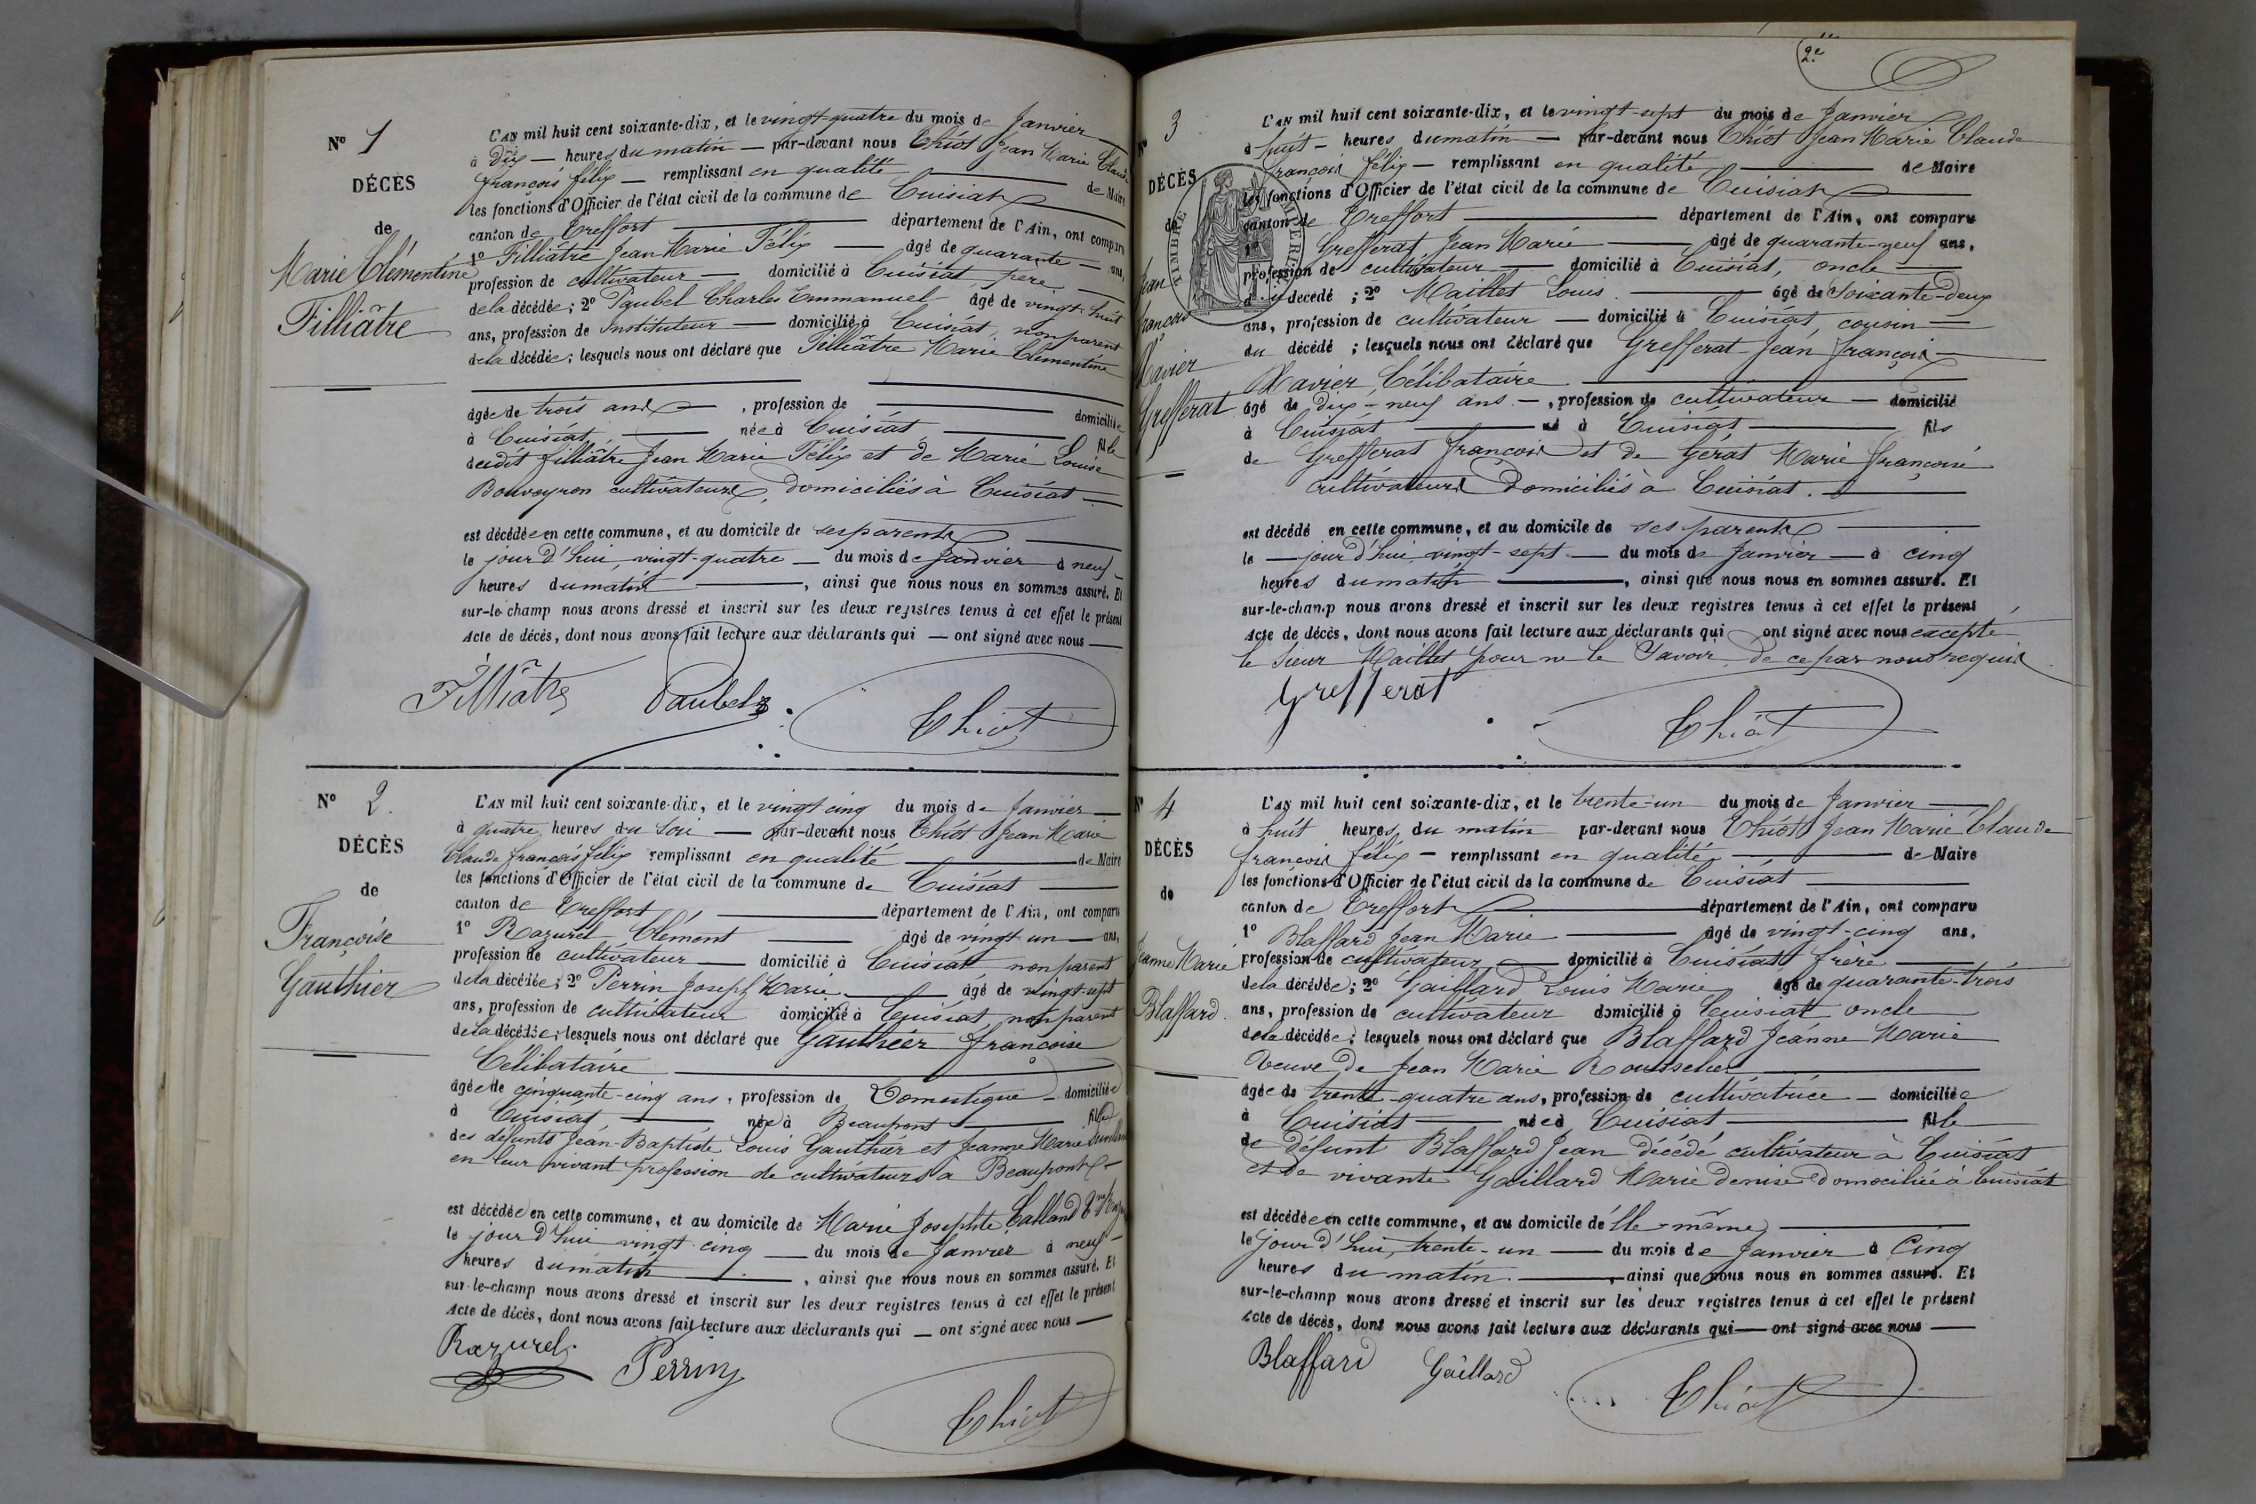 Nº 1
DÉCÈS
de
Marie Clémentine
Filliâtre
L'AN mil huit cent soixante-dix, et le vingt-quatre du mois de Janvier
à Dix heures du matin par-devant nous Chiôt Jean Marie Claude
François félix remplissant en qualité de Maire
les fonctions d'Officier de l'état civil de la commune de Cuisiat
canton de Treffort département de l'Ain, ont comparu
1º Filliâtre Jean Marie Félix âgé de quarante ans,
profession de cultivateur domicilié à Cuisiat père
de la décédée; 2º Paubel Charles Emmanuel âgé de vingt-huit
ans, profession de Instituteur domicilié à Cuisiat, non parent
de la décédée; lesquels nous ont déclaré que Filliâtre Marie Clémentine
âgée de trois ans, profession de domiciliée
à Cuisiat née à Cuisiat fille
du dit filliâtre Jean Marie Félix et de Marie Louise
Bouveyron cultivateurs, domiciliés à Cuisiat
est décédée en cette commune, et au domicile de ses parents
le jour d'hui, vingt-quatre du mois de Janvier à neuf
heures du matin, ainsi que nous nous en sommes assuré. Et
sur-le-champ nous avons dressé et inscrit sur les deux registres tenus à cet effet le présent
Acte de décès, dont nous avons fait lecture aux déclarants qui ont signé avec nous
Filliâtre Paubel Chiôt
Nº 2.
DÉCÈS
de
Françoise
Gauthier
L'AN mil huit cent soixante-dix, et le vingt cinq du mois de Janvier
à quatre heures du Soir par-devant nous Chiôt Jean Marie
Claude françois félix remplissant en qualité de Maire
les fonctions d'Officier de l'état civil de la commune de Cuisiat
canton de Treffort département de l'Ain, ont comparu
1º Razurel Clément âgé de vingt un ans,
profession de cultivateur domicilié à Cuisiat non parent
de la décédée; 2º Perrin Joseph Marie âgé de vingt-sept
ans, profession de cultivateur domicilié à Cuisiat, non parent
de la décédée; lesquels nous ont déclaré que Gauthier françoise
Célibataire
âgée de cinquante-cinq ans, profession de Domestique domiciliée
à Cuisiat née à Beaupont fille
des défunts Jean-Baptiste Louis Gauthier et Jeanne Marie
en leur vivant profession de cultivateurs à Beaupont
est décédée en cette commune, et au domicile de Marie Josephte
le jour d'hui vingt-cinq du mois de Janvier à neuf
heures du matin, ainsi que nous nous en sommes assuré. Et
sur-le-champ nous avons dressé et inscrit sur les deux registres tenus à cet effet le présent
Acte de décès, dont nous avons fait lecture aux déclarants qui ont signé avec nous
Razurel Perrin
Chiôt
2e
Nº 3
DÉCÈS
de
Jean
François
Xavier
Grefferat
TIMBRE
L'AN mil huit cent soixante-dix, et le vingt-sept du mois de Janvier
à huit heures du matin par-devant nous Chiôt Jean Marie Claude
François félix remplissant en qualité de Maire
les fonctions d'Officier de l'état civil de la commune de Cuisiat
canton de Treffort département de l'Ain, ont comparu
1º Grefferat Jean Marie âgé de quarante-neuf ans,
profession de cultivateur domicilié à Cuisiat, oncle
du décédé; 2º Maillet Louis âgé de Soixante-deux
ans, profession de cultivateur domicilié à Cuisiat, cousin
du décédé; lesquels nous ont déclaré que Grefferat Jean françois
Xavier, Célibataire
âgé de dix-neuf ans, profession de cultivateur domicilié
à Cuisiat né à Cuisiat fils
de Grefferat françois et de Gérat Marie françoise
cultivateurs Domiciliés à Cuisiat.
est décédé en cette commune, et au domicile de ses parents
le jour d'hui vingt-sept du mois de Janvier à cinq
heures du matin, ainsi que nous nous en sommes assuré. Et
sur-le-champ nous avons dressé et inscrit sur les deux registres tenus à cet effet le présent
Acte de décès, dont nous avons fait lecture aux déclarants qui ont signé avec nous excepté
le Sieur Maillet pour ne le Savoir, de ce par nous requis
Grefferat Chiôt
Nº 4
DÉCÈS
de
Jeanne Marie
Blaffard.
L'AN mil huit cent soixante-dix, et le trente-un du mois de Janvier
à huit heures du matin par-devant nous Chiôt Jean Marie Claude
françois félix remplissant en qualité de Maire
les fonctions d'Officier de l'état civil de la commune de Cuisiat
canton de Treffort département de l'Ain, ont comparu
1º Blaffard Jean Marie âgé de vingt-cinq ans,
profession de cultivateur domicilié à Cuisiat frère
de la décédée; 2º Gaillard Louis Marie âgé de quarante-trois
ans, profession de cultivateur domicilié à Cuisiat oncle
de la décédée; lesquels nous ont déclaré que Blaffard Jeanne Marie
Veuve de Jean Marie
âgée de trente-quatre ans, profession de cultivatrice domiciliée
à Cuisiat née à Cuisiat fille
de défunt Blaffard Jean décédé cultivateur à Cuisiat
et de vivante Gaillard Marie denise domiciliée à Cuisiat
est décédée en cette commune, et au domicile d'elle-même
le jour d'hui, trente-un du mois de Janvier à Cinq
heures du matin, ainsi que nous nous en sommes assuré. Et
sur-le-champ nous avons dressé et inscrit sur les deux registres tenus à cet effet le présent
Acte de décès, dont nous avons fait lecture aux déclarants qui ont signé avec nous
Blaffard Gaillard Chiôt